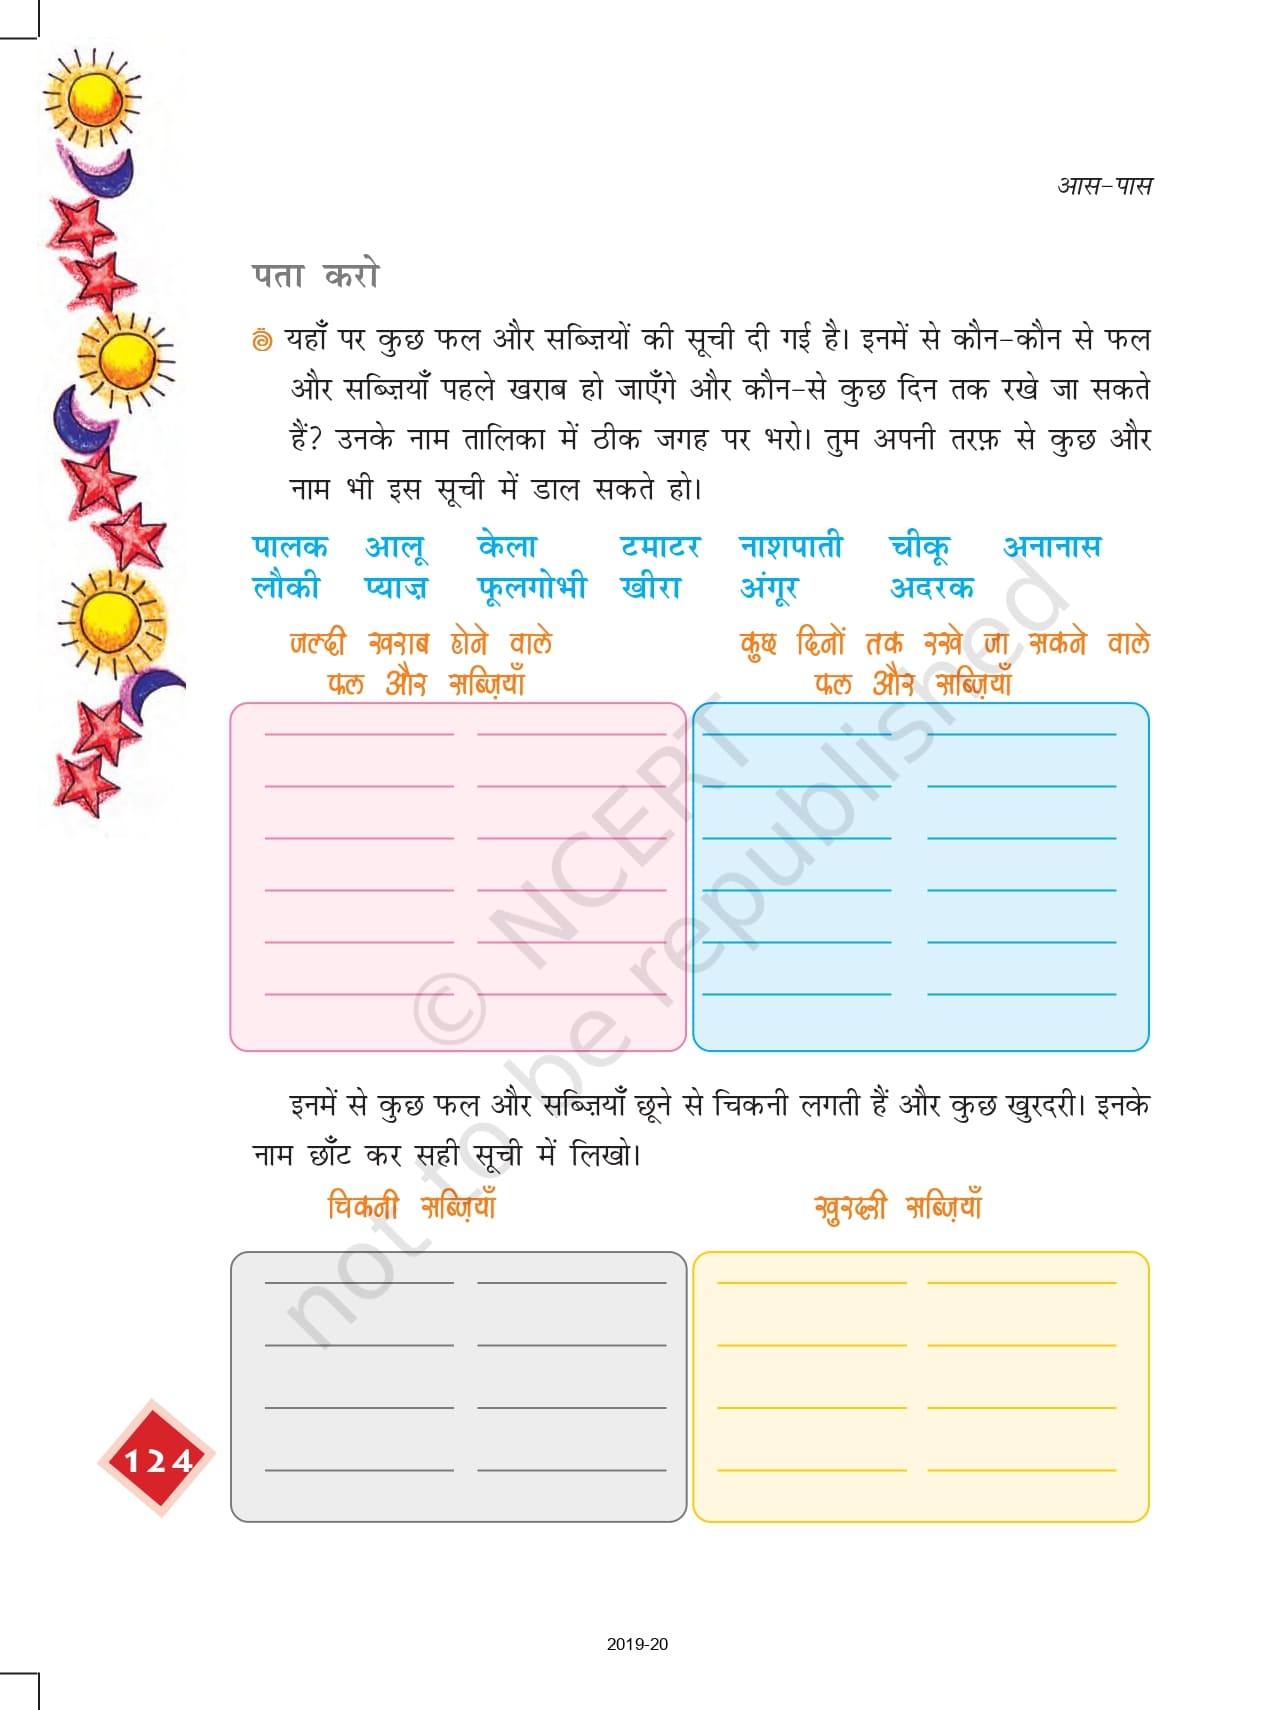 आस-पास
पता करो
यहाँ पर कुछ फल और सब्ज़ियों की सूची दी गई है। इनमें से कौन-कौन से फल
और सब्ज़ियाँ पहले खराब हो जाएँगे और कौन-से कुछ दिन तक रखे जा सकते
हैं? उनके नाम तालिका में ठीक जगह पर भरो। तुम अपनी तरफ़ से कुछ और
नाम भी इस सूची में डाल सकते हो।
पालक आलू केला टमाटर नाशपाती चीकू अनानास
लौकी प्याज़ फूलगोभी खीरा अंगूर अदरक
जल्दी खराब होने वाले
फल और सब्ज़ियाँ
कुछ दिनों तक रखे जा सकने वाले
फल और सब्ज़ियाँ
इनमें से कुछ फल और सब्ज़ियाँ छूने से चिकनी लगती हैं और कुछ खुरदरी। इनके
नाम छाँट कर सही सूची में लिखो।
चिकनी सब्ज़ियाँ
खुरदरी सब्ज़ियाँ
© NCERT
not to be republished
124
2019-20